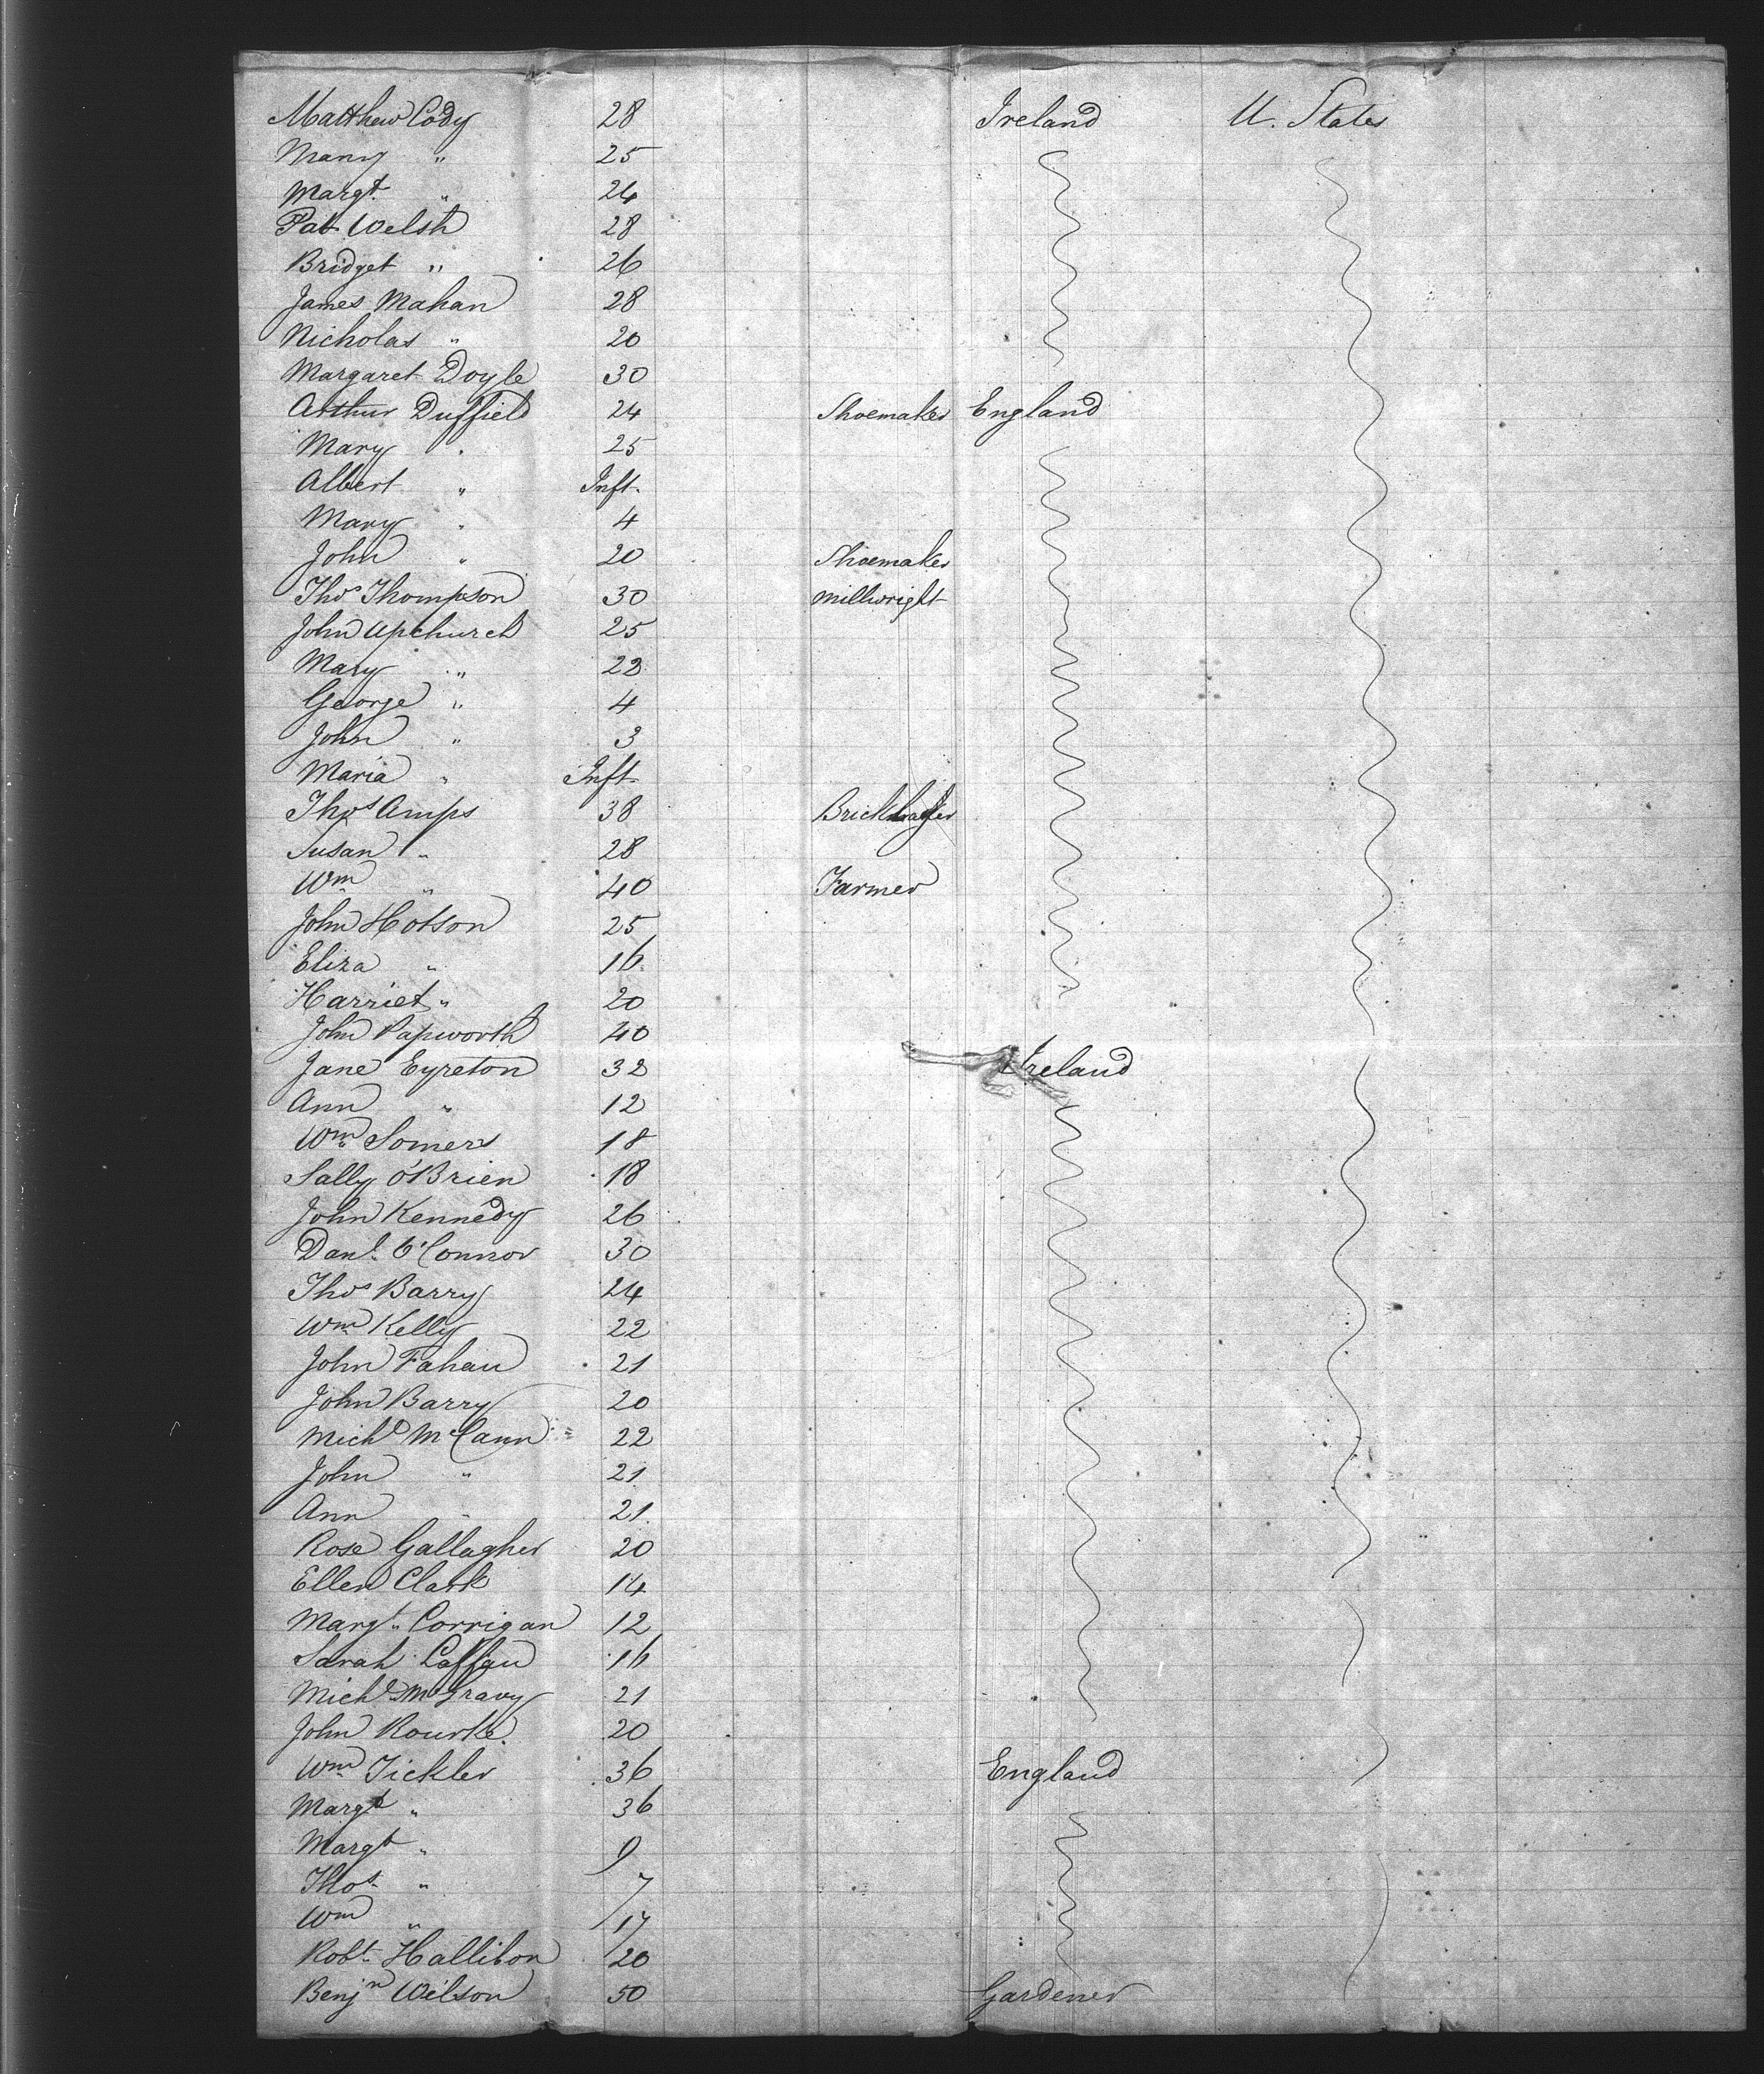 Matthew Cody 28 Ireland U. States
Mary " 25
Margt. " 24
Pat Welsh 28
Bridget " 26
James Mahan 28
Nicholas " 20
Margaret Doyle 30
Arthur Duffield 24 Shoemaker England
Mary " 25
Albert " Inft.
Mary " 4
John " 20 Shoemaker
Thos Thompson 30 Millwright
John Upchurch 25
Mary " 22
George " 4
John " 3
Maria " Inft.
Thos Amps 38
Susan " 28
Wm " 40 Farmer
John Hotson 25
Eliza " 16
Harriet " 20
John Papworth 40
Jane Eyreton 32 Ireland
Ann " 12
Wm Somers 18
Sally O'Brien 18
John Kennedy 26
Danl. O'Connor 30
Thos Barry 24
Wm Kelly 22
John Fahau 21
John Barry 20
Michl McCann 22
John " 21
Ann " 21
Rose Gallagher 20
Ellen Clark 14
Margt. Corrigan 12
Sarah Laffau 16
Michl 21
John Rourke 20
Wm Tickler 36 England
Margt " 36
Margt " 9
Thos. " 7
Wm " 17
Robt. Halliton 20
Benjn Wilson 50 Gardener